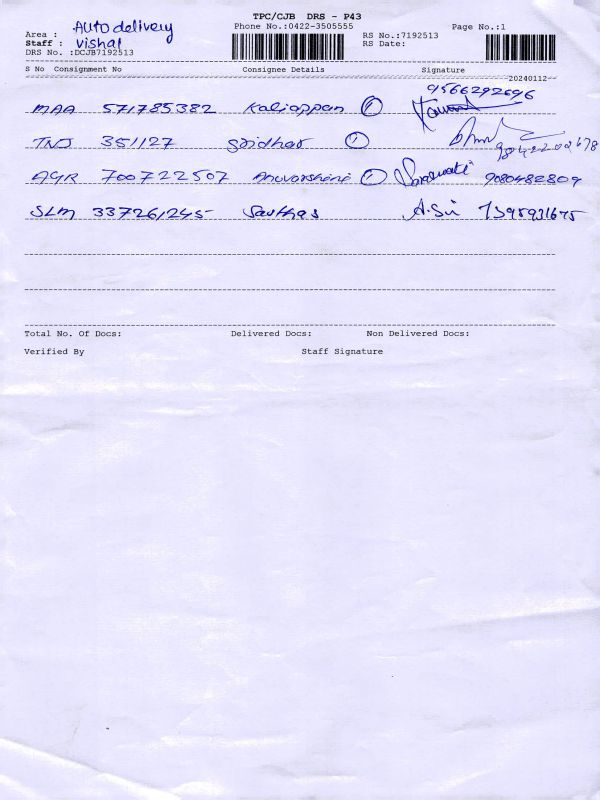 TPC/CJB DRS - P43
Auto delivery
Area :
Phone No.:0422-3505555
Page No.:1
Staff : vishal
RS No.:7192513
DRS No. :DCJB7192513
RS Date:
S No Consignment No Consignee Details Signature
20240112
9566292696
MAA 571785382 Kaliappan 1
TNJ 351127 Sridhar 1
AGR 700722507 Anuvarshini 1 Saraswati 9080482809
SLM 337261245 Savthas A.Sri 7395931675
Total No. Of Docs: Delivered Docs: Non Delivered Docs:
Verified By Staff Signature